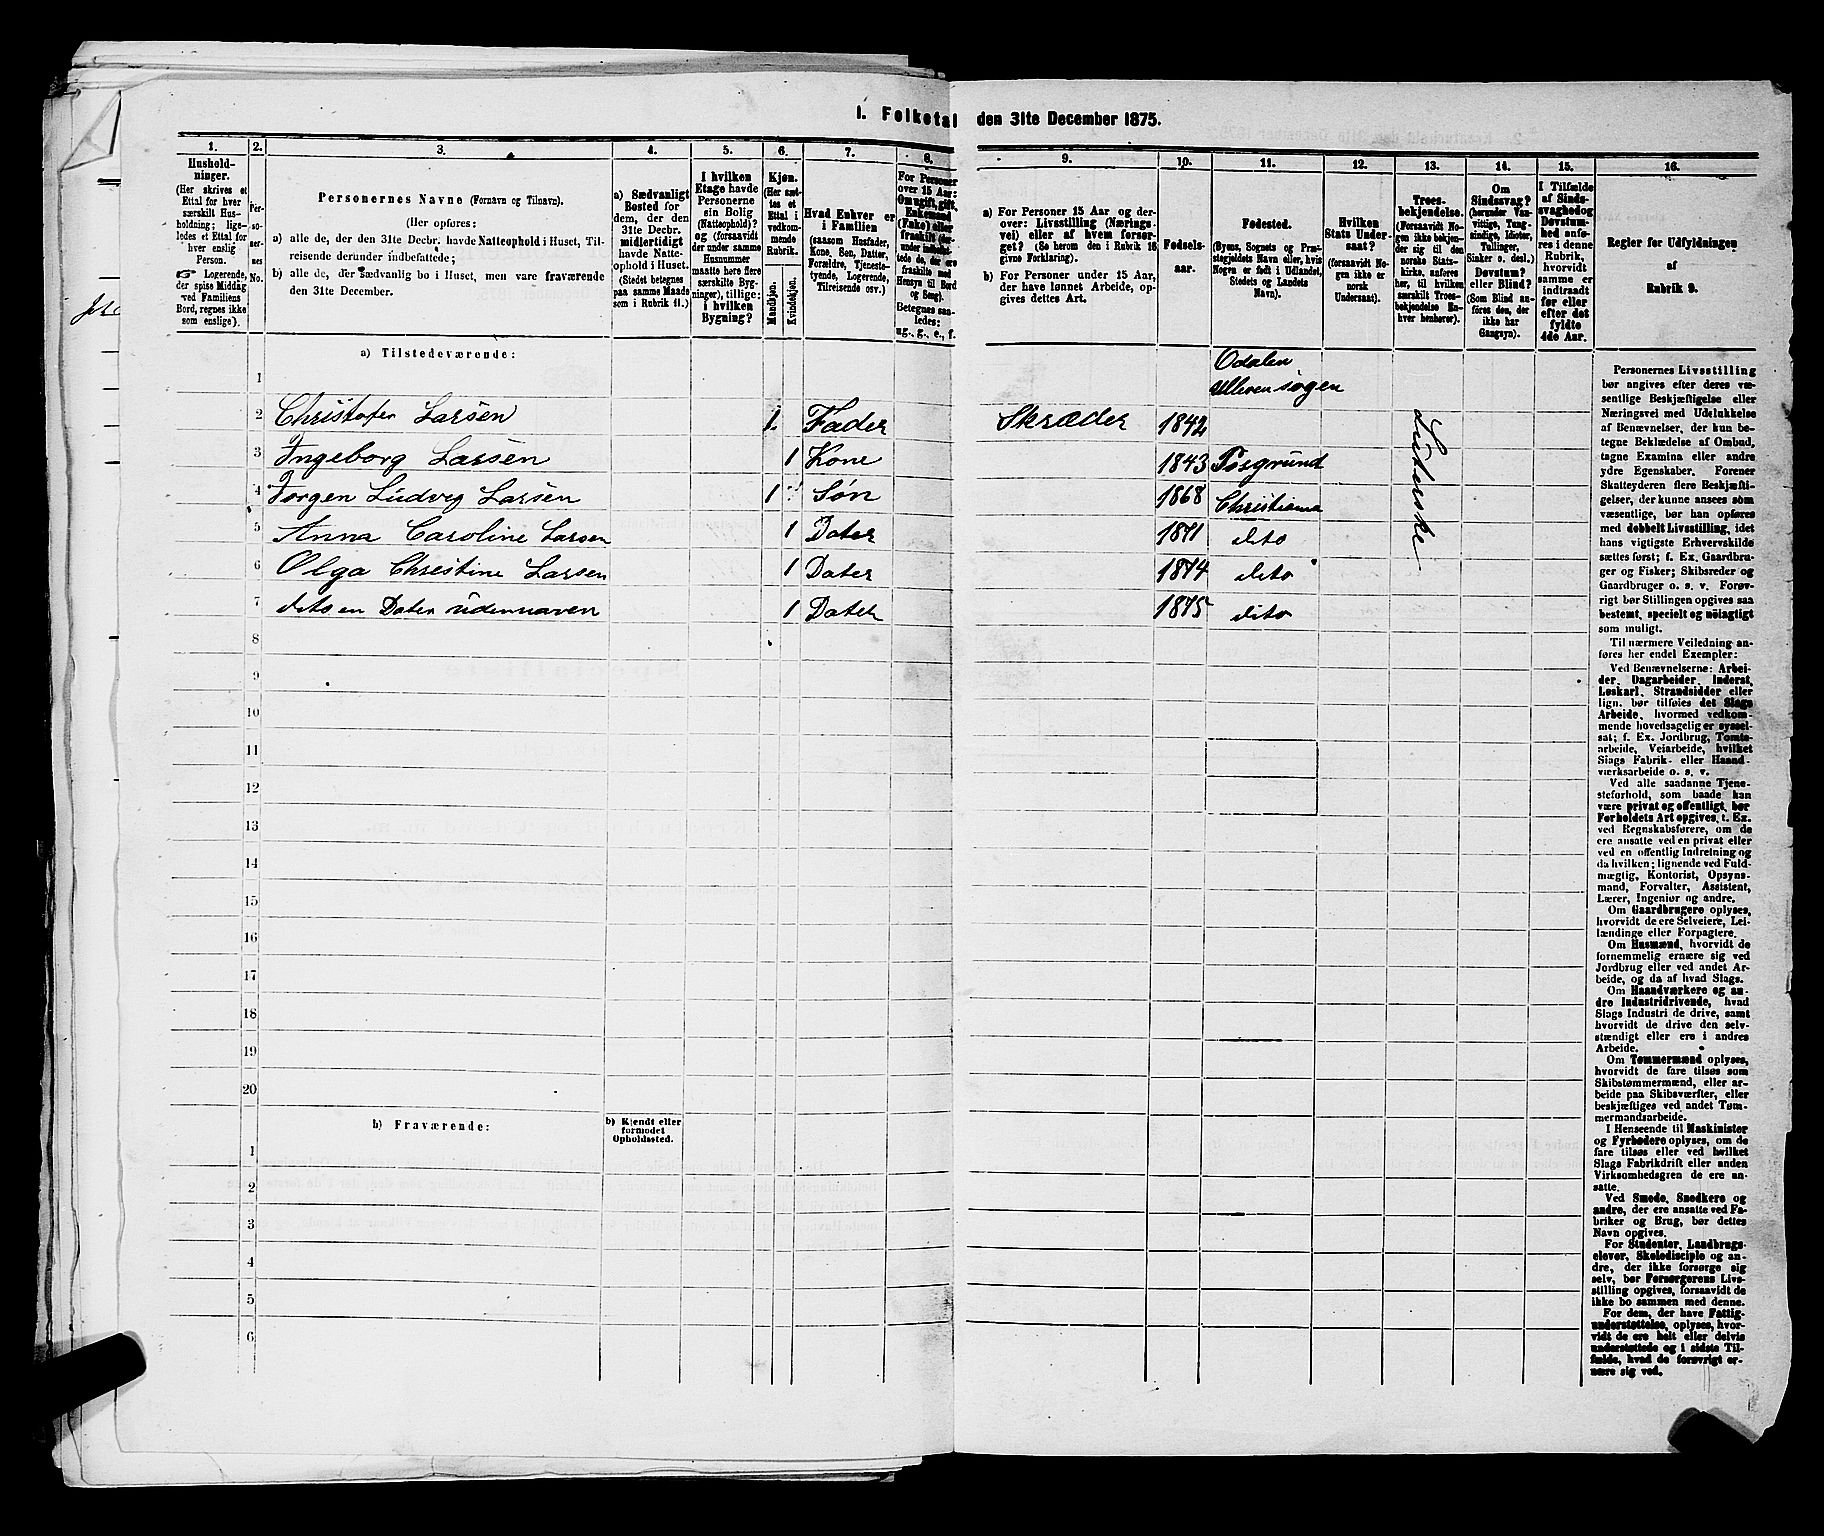 I. Folketal den 31te December 1875.
1. 2. 3. 4. 5. 6. 7. 8. 9. 10. 11. 12. 13. 14. 15. 16.
Hushold-
ninger.
(Her skrives et
Ettal for hver
særskilt Hus-
holdning; lige-
ledes et Ettal for
hver enslig
Person.
☞ Logerende,
der spise Middag
ved Familiens
Bord, regnes ikke
som enslige).
Per-
so-
ner-
nes
No.
Personernes Navne (Fornavn og Tilnavn).
(Her opføres:
a) alle de, der den 31te Decbr. havde Natteophold i Huset, Til-
reisende derunder indbefattede;
b) alle de, der sædvanlig bo i Huset, men vare fraværende
den 31te December.
a) Sædvanligt
Bosted for
dem, der den
31te Decbr.
midlertidigt
havde Natte-
ophold i Huset.
(Stedet betegnes
paa samme Maade
som i Rubrik 11.)
I hvilken
Etage havde
Personerne
sin Bolig
(Natteophold)?
og (forsaavidt
der under samme
Husnummer
maatte høre flere
særskilte Byg-
ninger), tillige:
i hvilken
Bygning?
Kjøn.
(Her sæt-
tes et
Ettal i
vedkom-
mende
Rubrik.
Mandkjøn.
Kvindekjøn.
Hvad Enhver er
i Familien
(saasom Husfader,
Kone, Søn, Datter,
Forældre, Tjeneste-
tyende, Logerende,
Tilreisende osv.)
For Personer
over 15 Aar:
Om ugift, gift,
Enkemand
(Enke) eller
fraskilt
Hensyn til Bord
og Seng).
Betegnes saa-
ledes:
ug., g., e., f.
a) For Personer 15 Aar og der-
over: Livsstilling (Nærings-
vei) eller af hvem forsør-
get? (Se herom den i Rubrik 16
givne Forklaring).
b) For Personer under 15 Aar,
der have lønnet Arbeide, op-
gives dettes Art.
Fødsels-
aar.
Fødested.
(Byens, Sognets og Præ-
stegjeldets Navn eller, hvis
Nogen er født i Udlandet,
Stedets og Landets
Navn).
Hvilken
Stats Under-
saat?
(forsaavidt No-
gen ikke er
norsk
Undersaat).
Troes-
bekjendelse.
(Forsaavidt No-
gen ikke bekjen-
der sig til den
norske Stats-
kirke, anføres
her, til hvilken
særskilt Troes-
bekjendelse En-
hver henhører).
Om
Sindssvag?
(herunder Van-
vittige, Tung-
sindige, Idioter,
Tullinger,
Sinker o. desl.)
Døvstum?
eller Blind?
(Som Blind an-
føres den, der
ikke har
Gangsyn).
I Tilfælde
af Sinds-
svaghed og
Døvstum-
hed anfø-
res i denne
Rubrik,
hvorvidt
samme er
indtraadt
før eller
efter det
fyldte
4de Aar.
Regler for Udfyldningen
af
Rubrik 9.
a) Tilstedeværende:
1 Odalen
Ulleren sogen
2 Christofer Larsen 1. Fader Skræder 1842
3 Ingeborg Larsen 1 Kone 1843 Posgrund
4 Jørgen Ludvig Larsen 1 Søn 1868 Christiania
5 Anna Caroline Larsen 1 Dater 1871 dito
6 Olga Christine Larsen 1 Dater 1874 dito
7 dito en Dater udennaven 1 Dater 1875 dito
Luterske
8
9
10
11
12
13
14
15
16
17
18
19
20
b) Fraværende:
b) Kjendt eller
formodet
Opholdssted.
1
2
3
4
5
6
Personernes Livsstilling
bør angives efter deres væ-
sentlige Beskjæftigelse eller
Næringsvei med Udelukkelse
af Benævnelser, der kun be-
tegne Beklædelse af Ombud,
tagne Examina eller andre
ydre Egenskaber. Forener
Skatteyderen flere Beskjæfti-
gelser, der kunne ansees som
væsentlige, bør han opføres
med dobbelt Livsstilling, idet
hans vigtigste Erhvervskilde
sættes først; f. Ex. Gaardbru-
ger og Fisker; Skibsreder og
Gaardbruger o. s. v. Forøv-
rigt bør Stillingen opgives saa
bestemt, specielt og nøiagtigt
som muligt.
Til nærmere Veiledning an-
føres her endel Exempler:
Ved Benævnelserne: Arbei-
der, Dagarbeider, Inderst,
Løskarl, Strandsidder eller
lign. bør tilføies det Slags
Arbeide, hvormed vedkom-
mende hovedsagelig er syssel-
sat; f. Ex. Jordbrug, Tomte-
arbeide, Veiarbeide, hvilket
Slags Fabrik- eller Haand-
værksarbeide o. s. v.
Ved alle saadanne Tjene-
steforhold, som baade kan
være privat og offentligt, bør
Forholdets Art opgives, t. Ex.
ved Regnskabsførere, om de
ere ansatte ved en privat eller
ved en offentlig Indretning og
da hvilken; lignende ved Fuld-
mægtig, Kontorist, Opsyns-
mand, Forvalter, Assistent,
Lærer, Ingeniør og andre.
Om Gaardbrugere oplyses,
hvorvidt de ere Selveiere, Lei-
lændinge eller Forpagtere.
Om Husmænd, hvorvidt de
fornemmelig ernære sig ved
Jordbrug eller ved andet Ar-
beide, og da af hvad Slags.
Om Haandværkere og an-
dre Industridrivende, hvad
Slags Industri de drive, samt
hvorvidt de drive den selv-
stændigt eller ere i andres
Arbeide.
Om Tømmermænd oplyses,
hvorvidt de fare tilsøs som
Skibstømmermænd, eller ar-
beide paa Skibsværfter, eller
beskjæftiges ved andet Tøm-
mermandsarbeide.
I Henseende til Maskinister
og Fyrbødere oplyses, om de
fare tilsøs eller ved hvilket
Slags Fabrikdrift eller anden
Virksomhedsgren de ere an-
satte.
Ved Smede, Snedkere og
andre, der ere ansatte ved Fa-
briker og Brug, bør dettes
Navn opgives.
For Studenter, Landbrugs-
elever, Skoledisciple og an-
dre, der ikke forsørge sig
selv, bør Forsørgerens Livs-
stilling opgives, forsaavidt de
ikke bo sammen med denne.
For dem, der have Fattig-
understøttelse, oplyses, hvor-
vidt de ere helt eller delvis
understøttede og i sidste Til-
fælde, hvad de forøvrigt er-
nære sig ved.